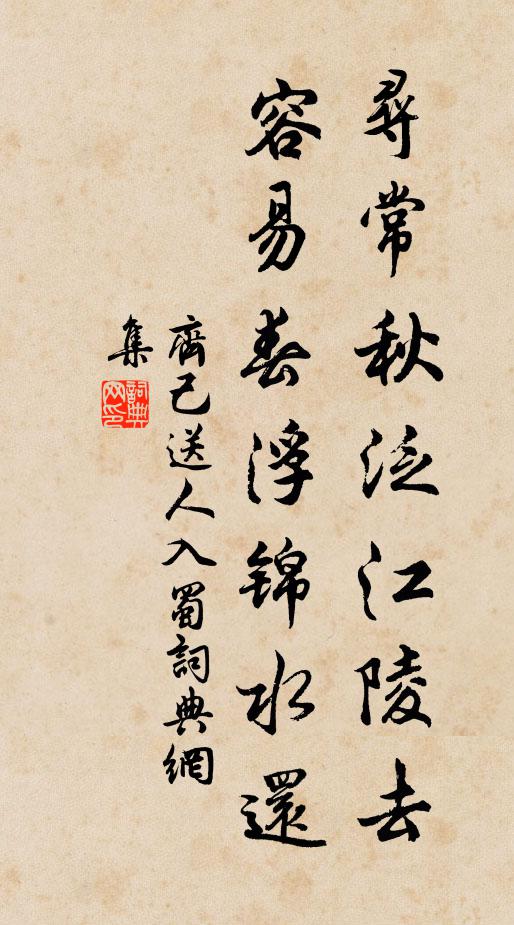 尋常秋泛江陵去
容易春浮錦水還
齊己送人入蜀詞典網
集
詞典
网印